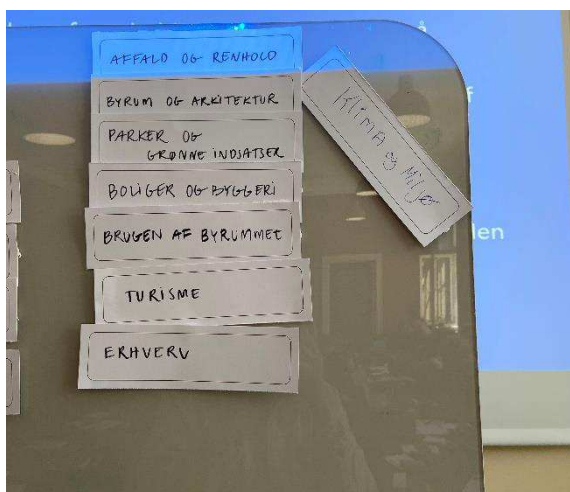 AFFALD OG RENHOLD
BYRUM OG ARKITEKTUR
PARKER OG
GRØNNE INDSATSER
BOLIGER OG BYGGERI
BRUGEN AF BYRUMMET
TURISME
ERHVERV
Klima og Miljø